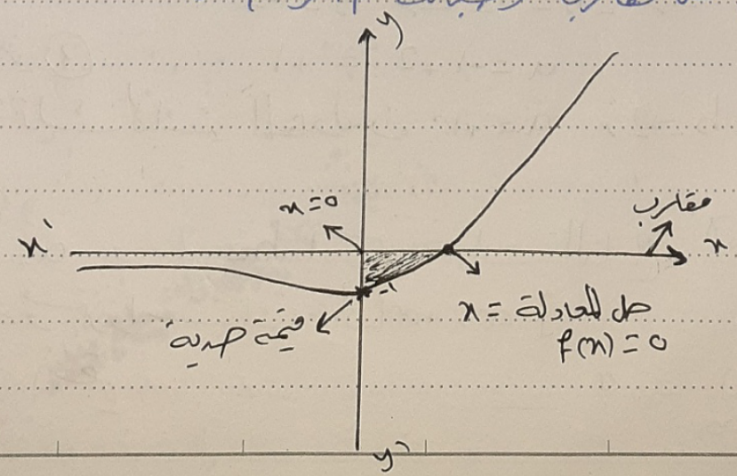 y
x=0
مقارب
x'
x
-1
x = حل المعادلة
f(x) = 0
قيمة حدية
y'